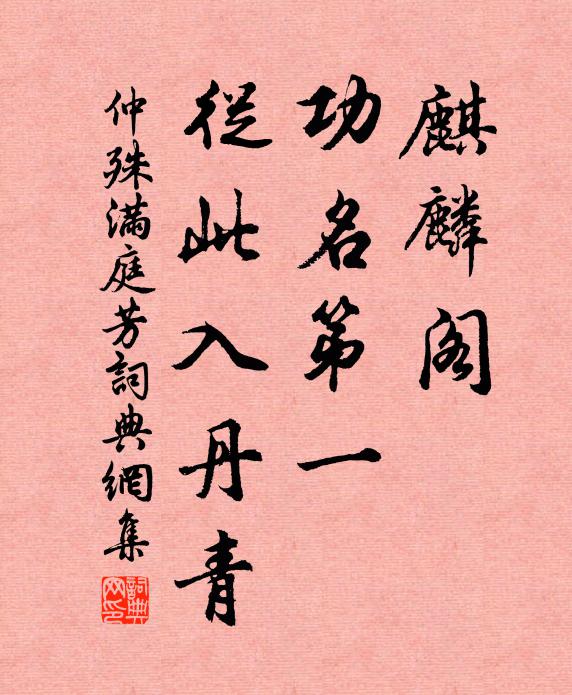 麒麟阁
功名第一
從此入丹青
仲殊滿庭芳詞典網集
詞典
网印